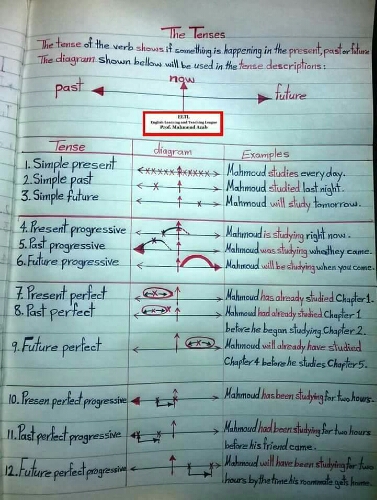 The Tenses
The tense of the verb shows if something is happening in the present, past or future
The diagram shown bellow will be used in the tense descriptions:
now
past
future
EETL
English Learning and Teaching League
Prof. Mahmoud Azab
Tense diagram Examples
1. Simple present Mahmoud studies every day.
2. Simple past Mahmoud studied last night.
3. Simple future Mahmoud will study tomorrow.
4. Present progressive Mahmoud is studying right now.
5. Past progressive Mahmoud was studying when they came.
6. Future progressive Mahmoud will be studying when you come.
7. Present perfect Mahmoud has already studied Chapter 1.
8. Past perfect Mahmoud had already studied Chapter 1
before he began studying Chapter 2.
9. Future perfect Mahmoud will already have studied
Chapter 4 before he studies Chapter 5.
10. Presen perfect progressive Mahmoud has been studying for two hours.
11. Past perfect progressive Mahmoud had been studying for two hours
before his friend came.
12. Future perfect progressive Mahmoud will have been studying for two
hours by the time his roommate gets home.